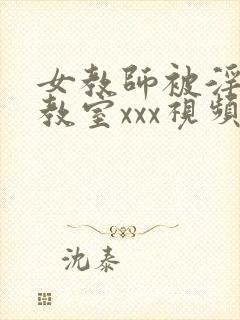 女教師被淫
教室xxx視頻
沈泰